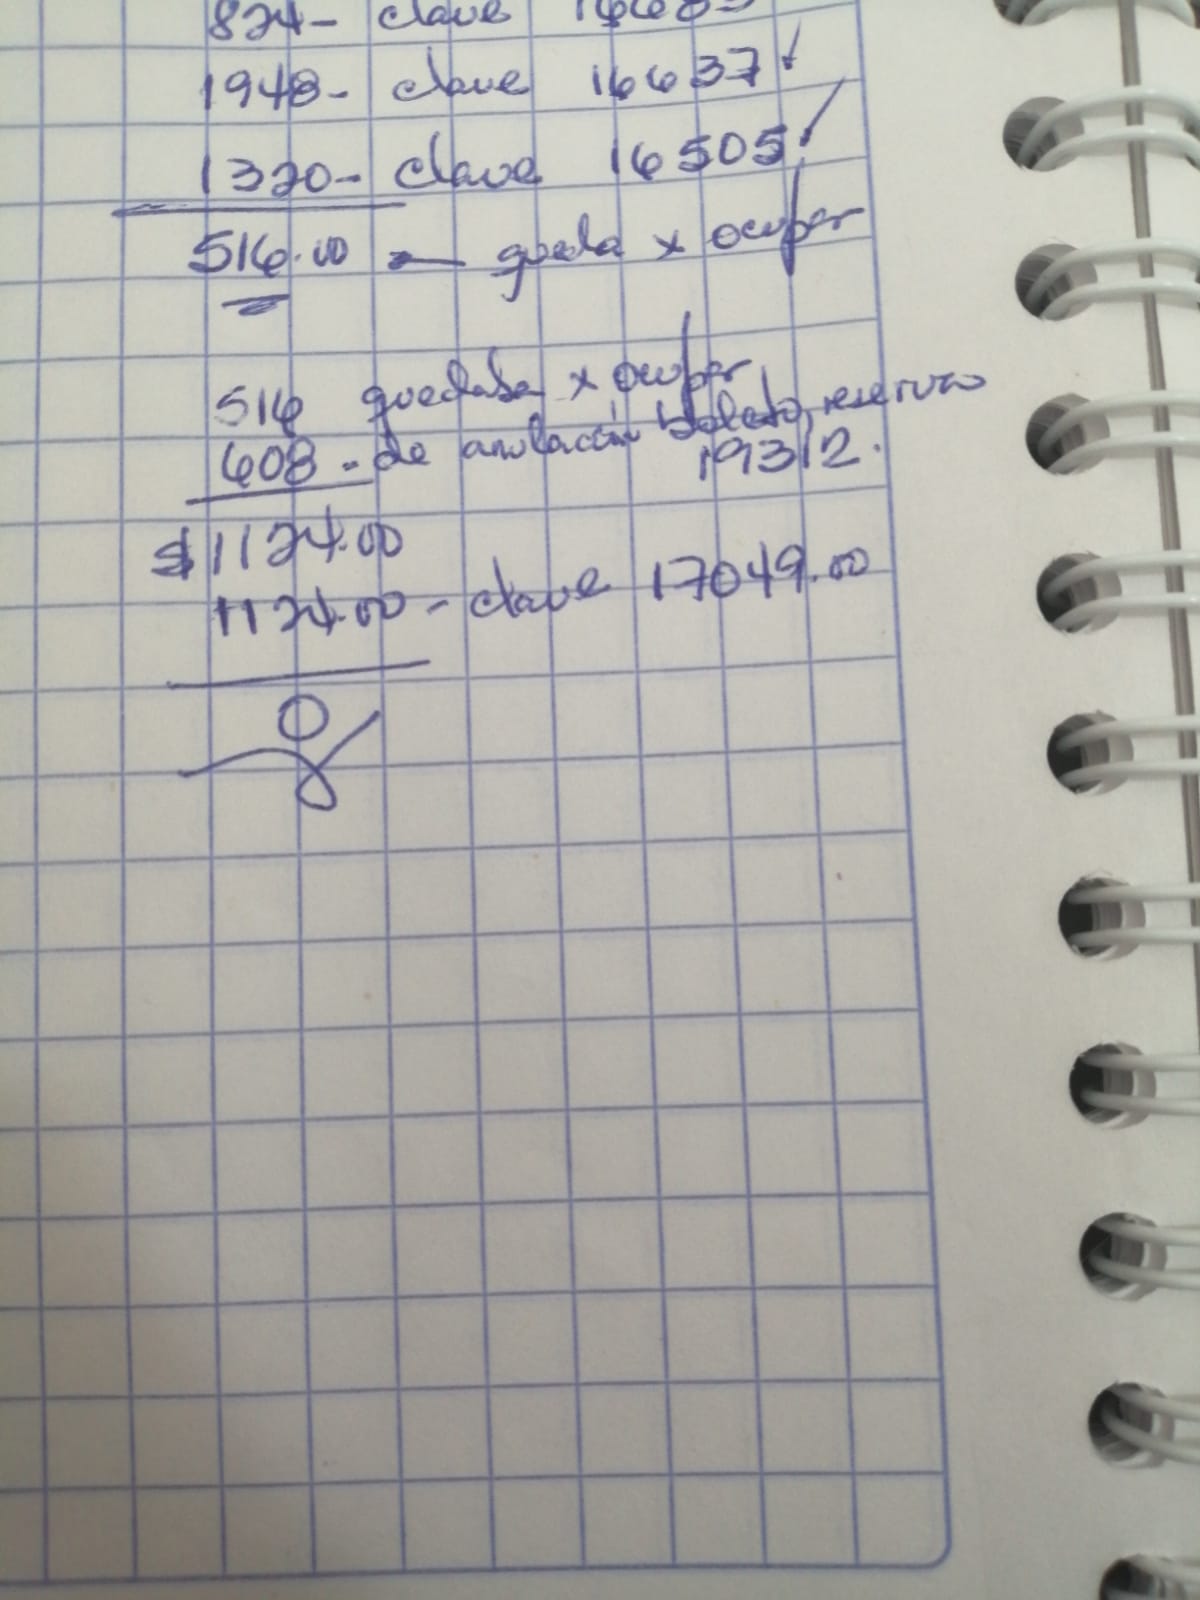 824- clave
1948- clave 16637 ✓
1320- clave 16505 ✓
516.00 — queda x ocupar
516 quedaba x ocupar
608 - de anulación boleto, reserva
19312.
$1124.00
1124.00 - clave 17049.00
0